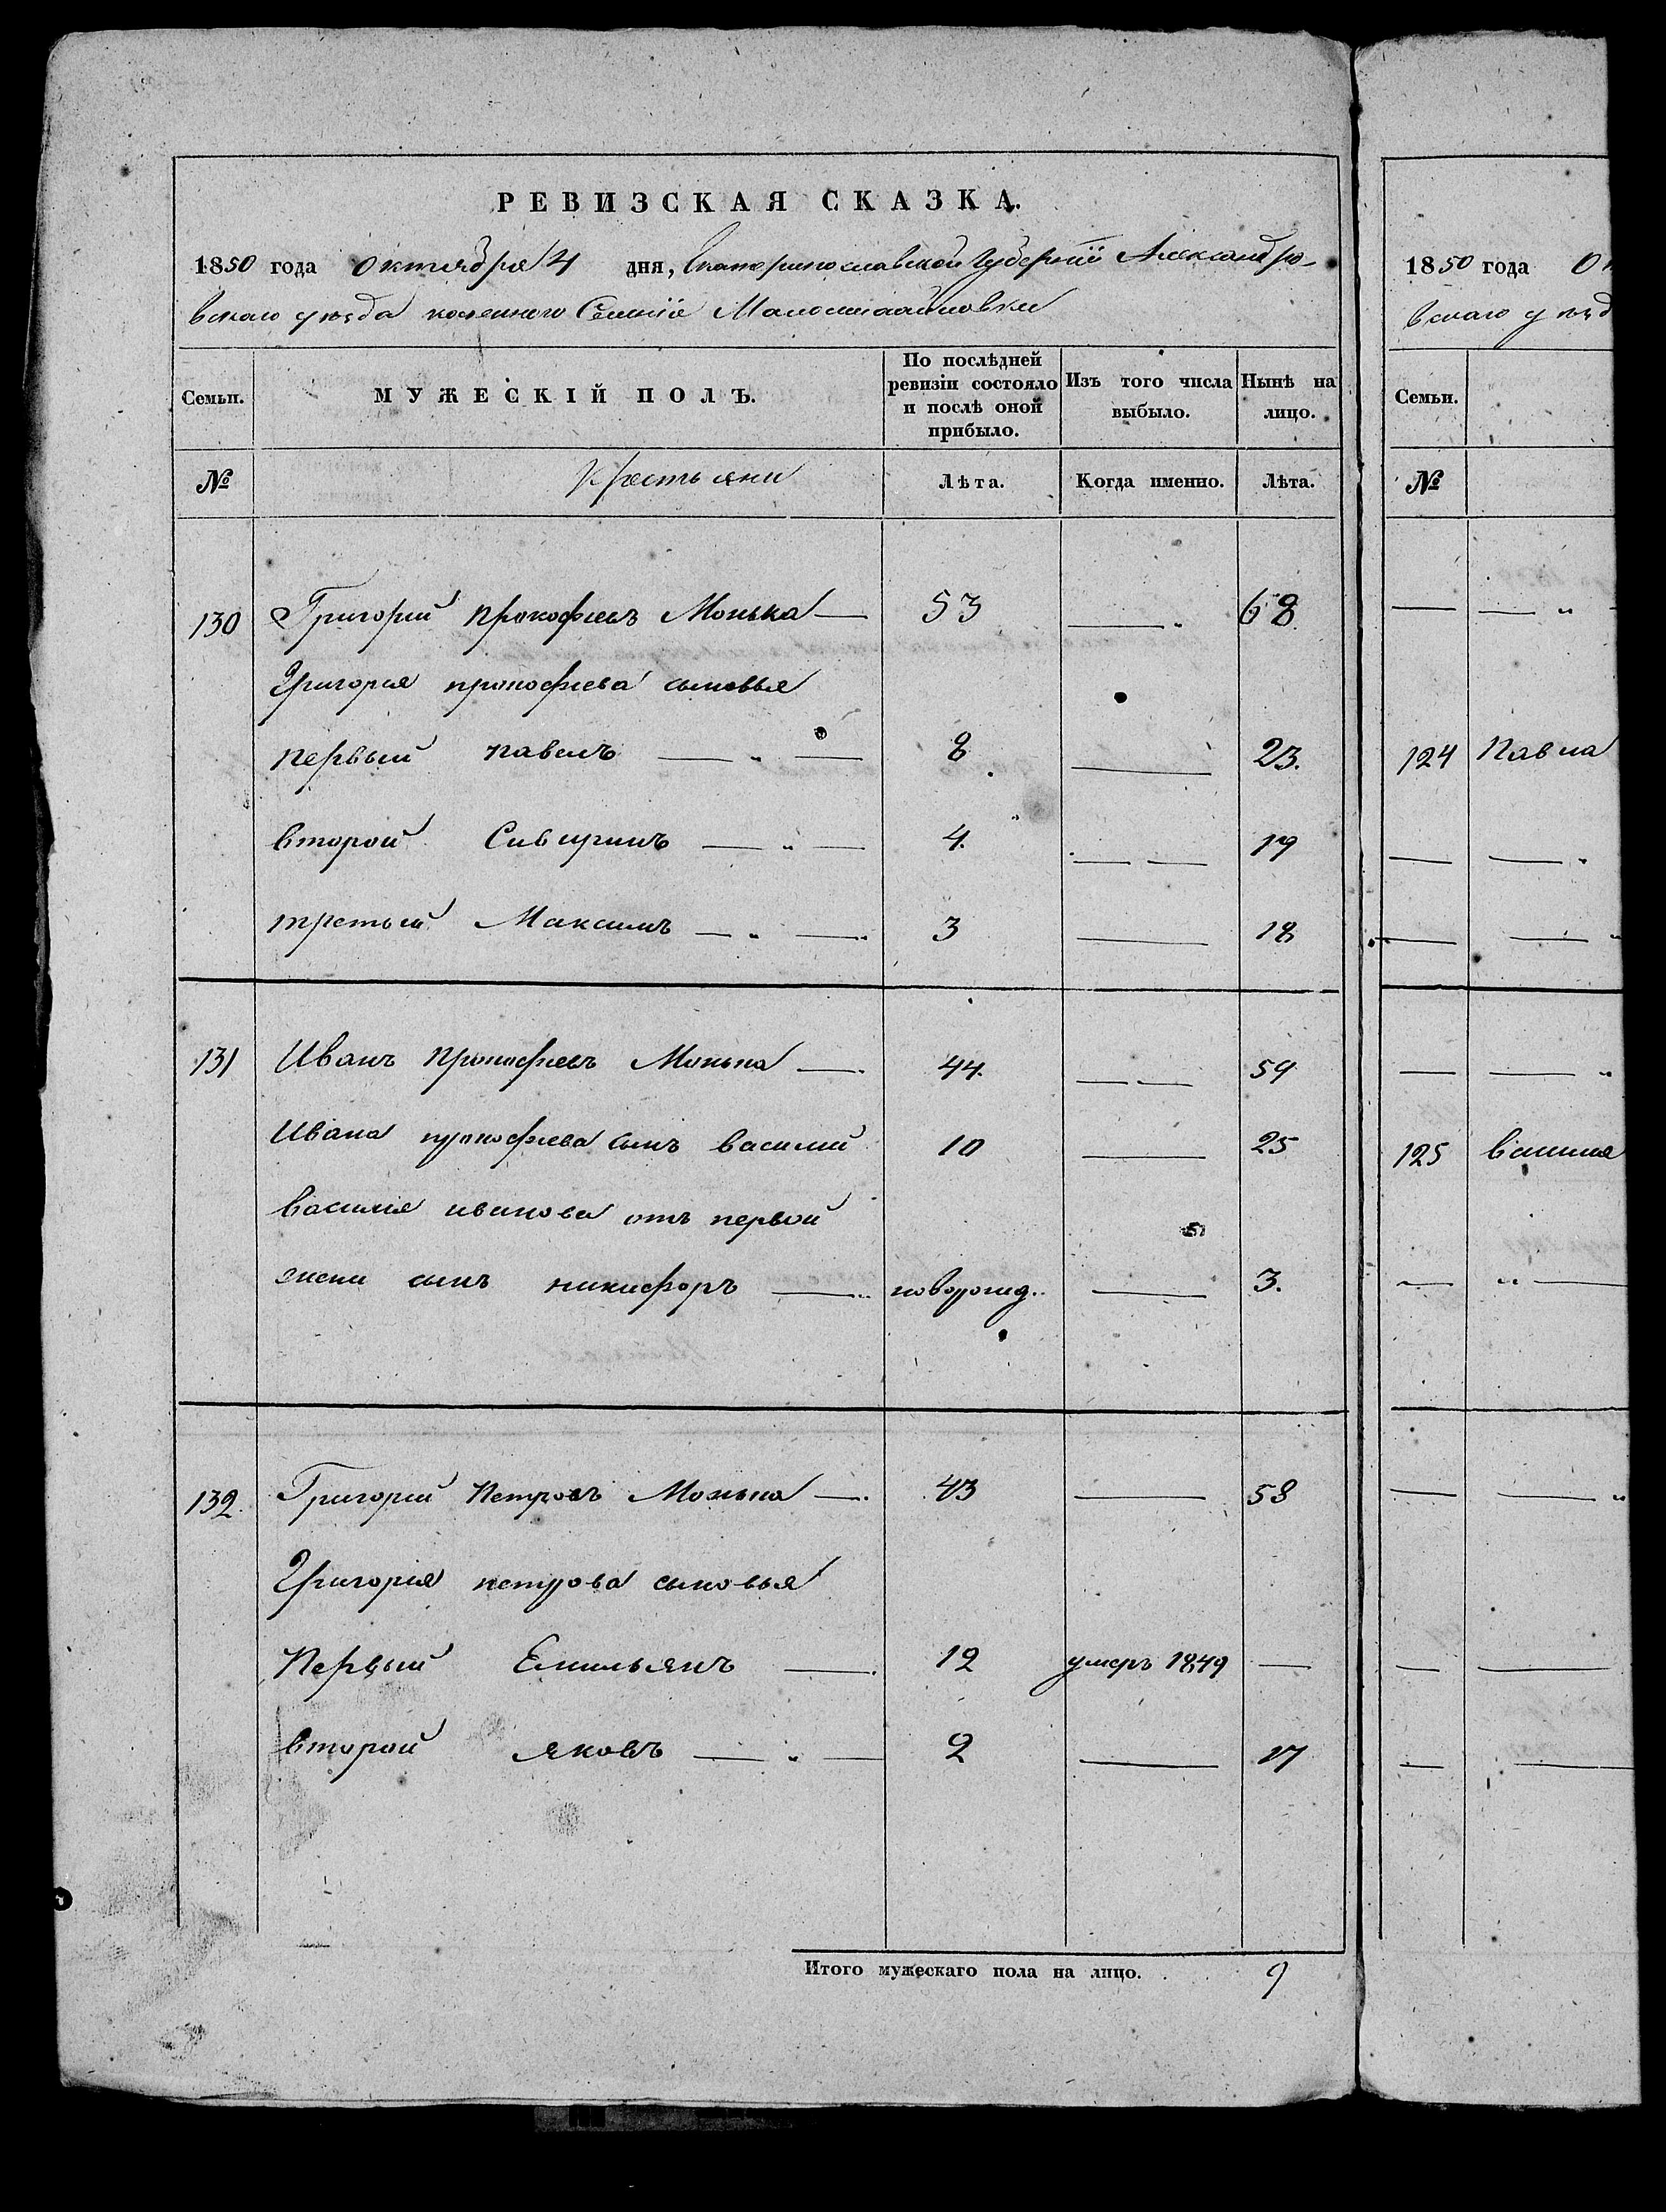 РЕВИЗСКАЯ СКАЗКА.
1850 года Октября 4 дня, Екатеринославской Губернии Александро-
вскаго уезда казенного Селения
Семьи. МУЖЕСКІЙ ПОЛЪ. По послѣдней ревизіи состояло и послѣ оной прибыло. Изъ того числа выбыло. Нынѣ на лицо.
№ Крестьяни Лѣта. Когда именно. Лѣта.
130 Григорий Прокофьевъ Монька — 53 — 68
Григория прокофьева сыновья
первый павелъ — 8 — 23.
второй — 4. — 19
третьий Максимъ — 3 — 18
131 Иванъ Прокофьевъ Монька — 44. — 59
Ивана прокофьева сынъ василий 10 — 25
василия иванова отъ первой
жени сынъ никифоръ — новорожд. — 3.
132. Григорий Петровъ Монька — 43 — 58
Григория петрова сыновья
Первый Емильянъ — 12 умеръ 1849 —
второй яковъ — 2 — 17
Итого мужескаго пола на лицо. 9
1850 года
Семьи.
№
124 Павла
125 василия